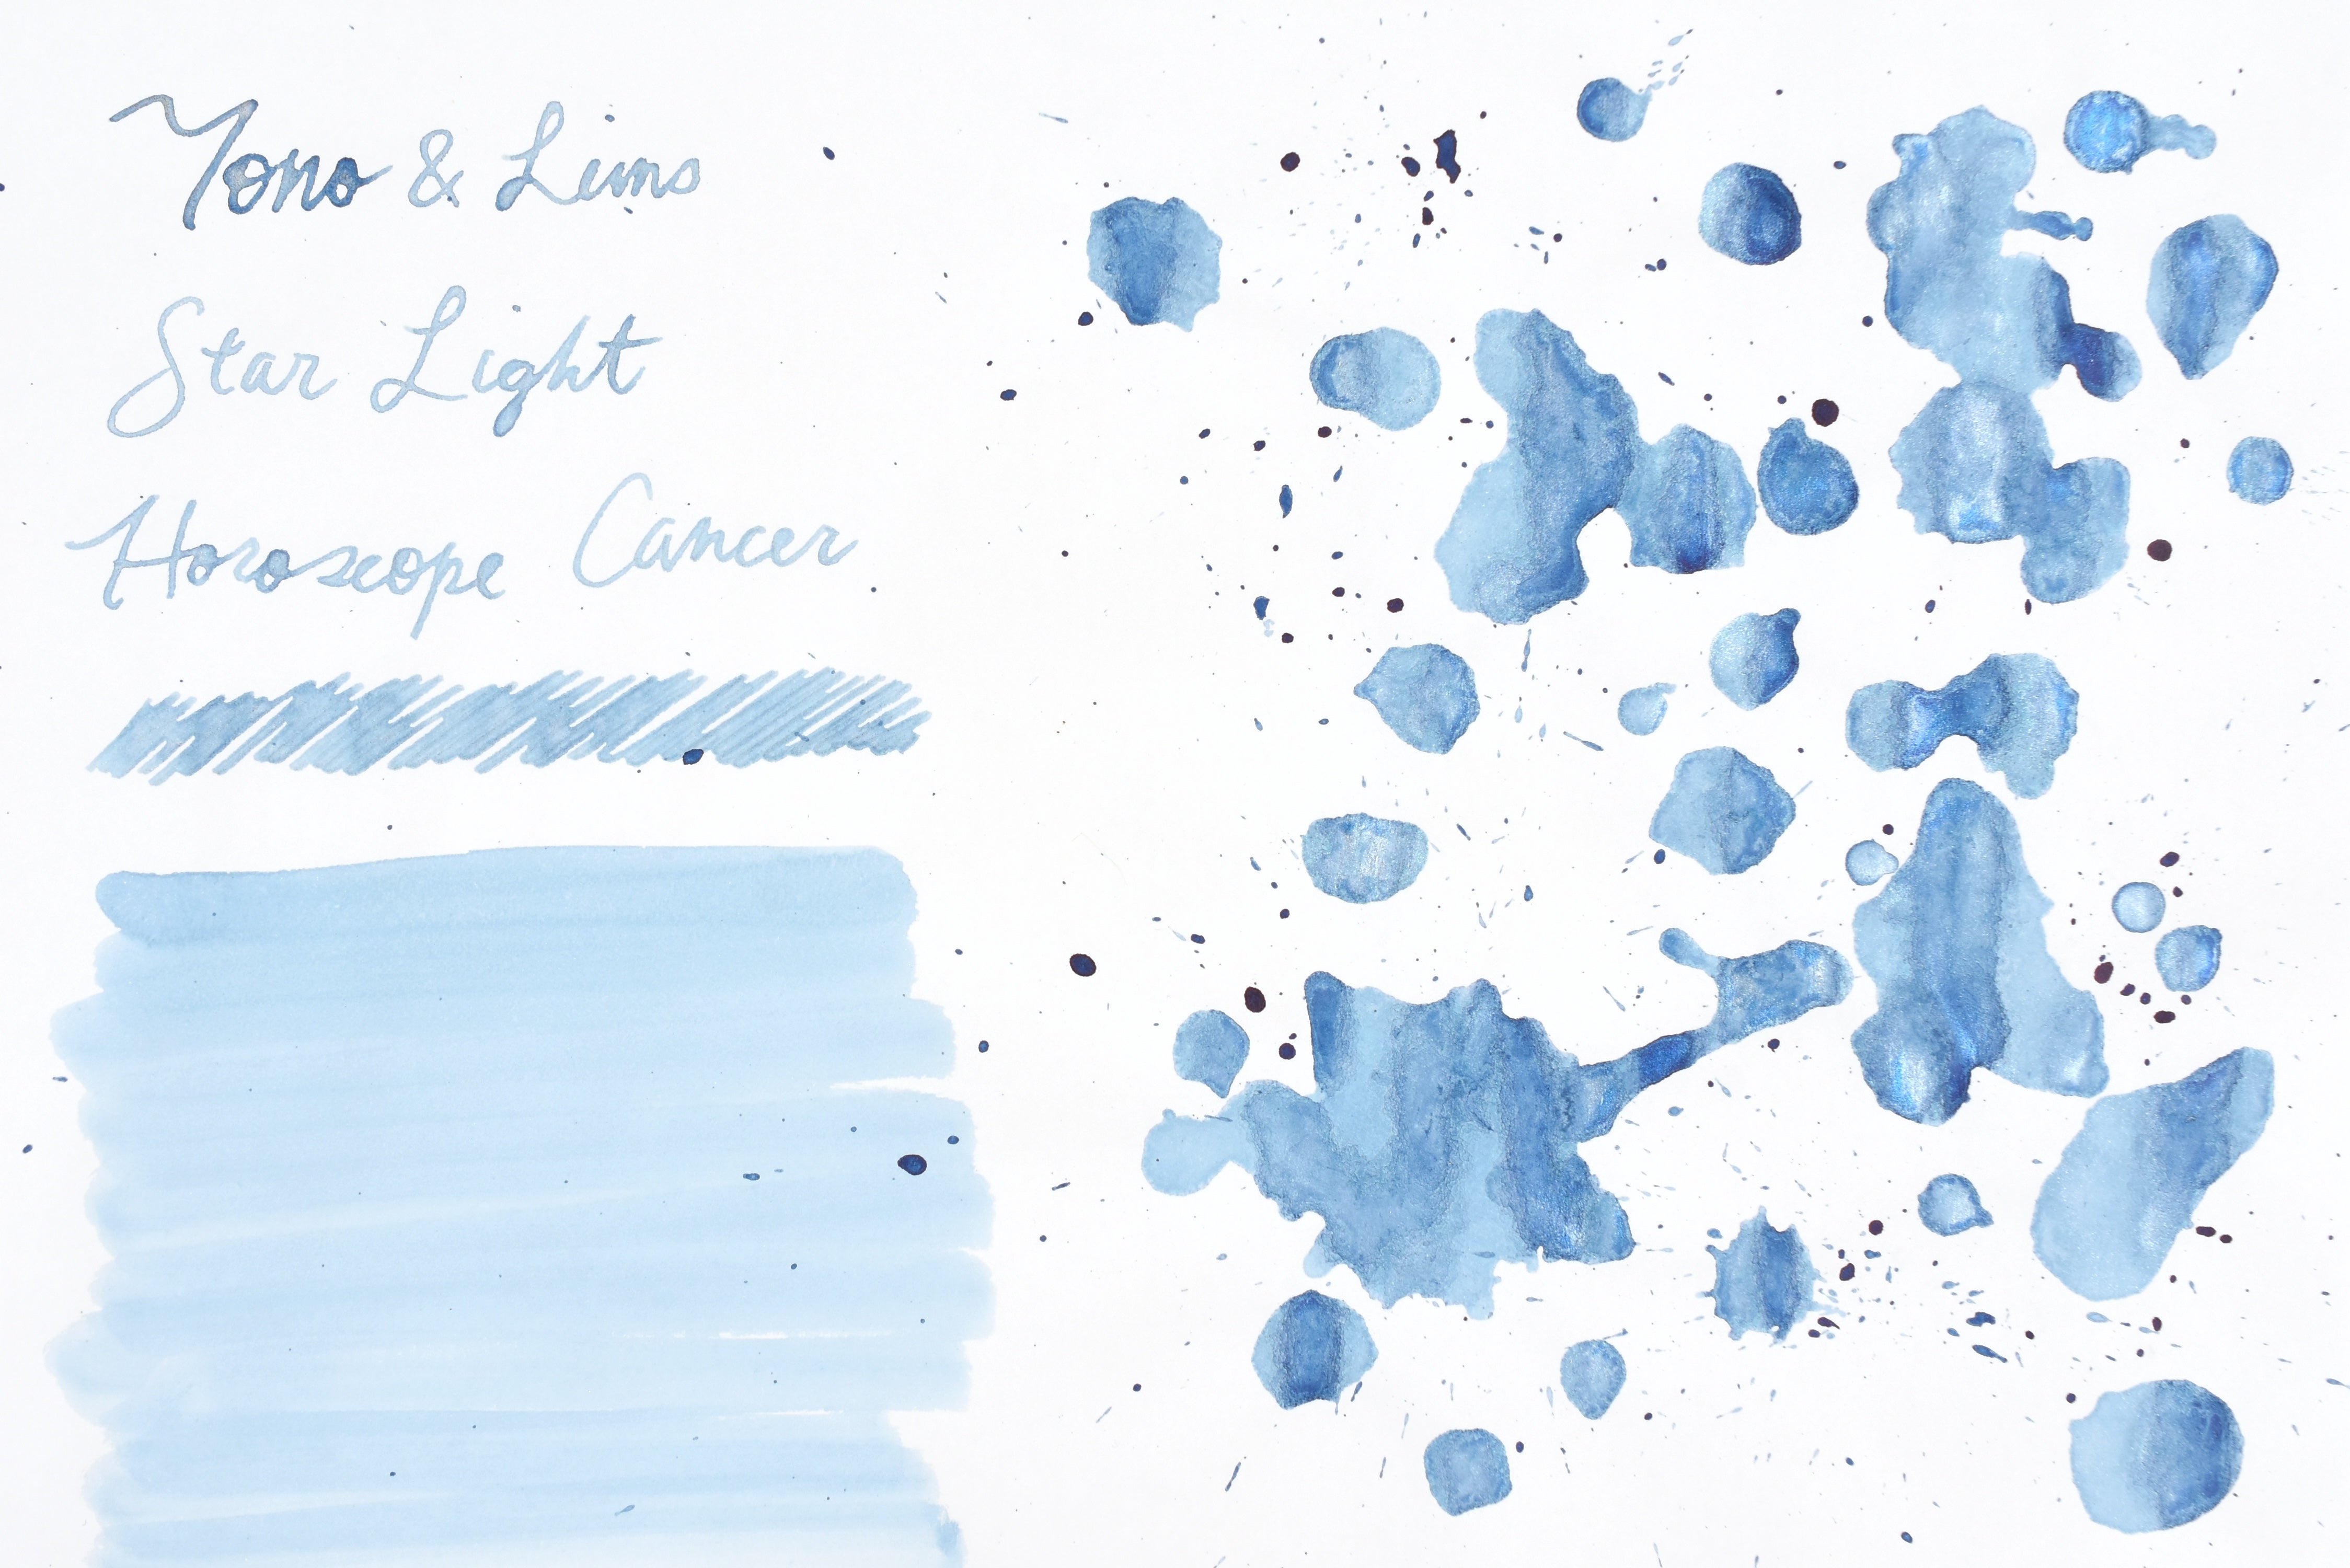 Tono & Lims
Star Light
Horoscope Cancer